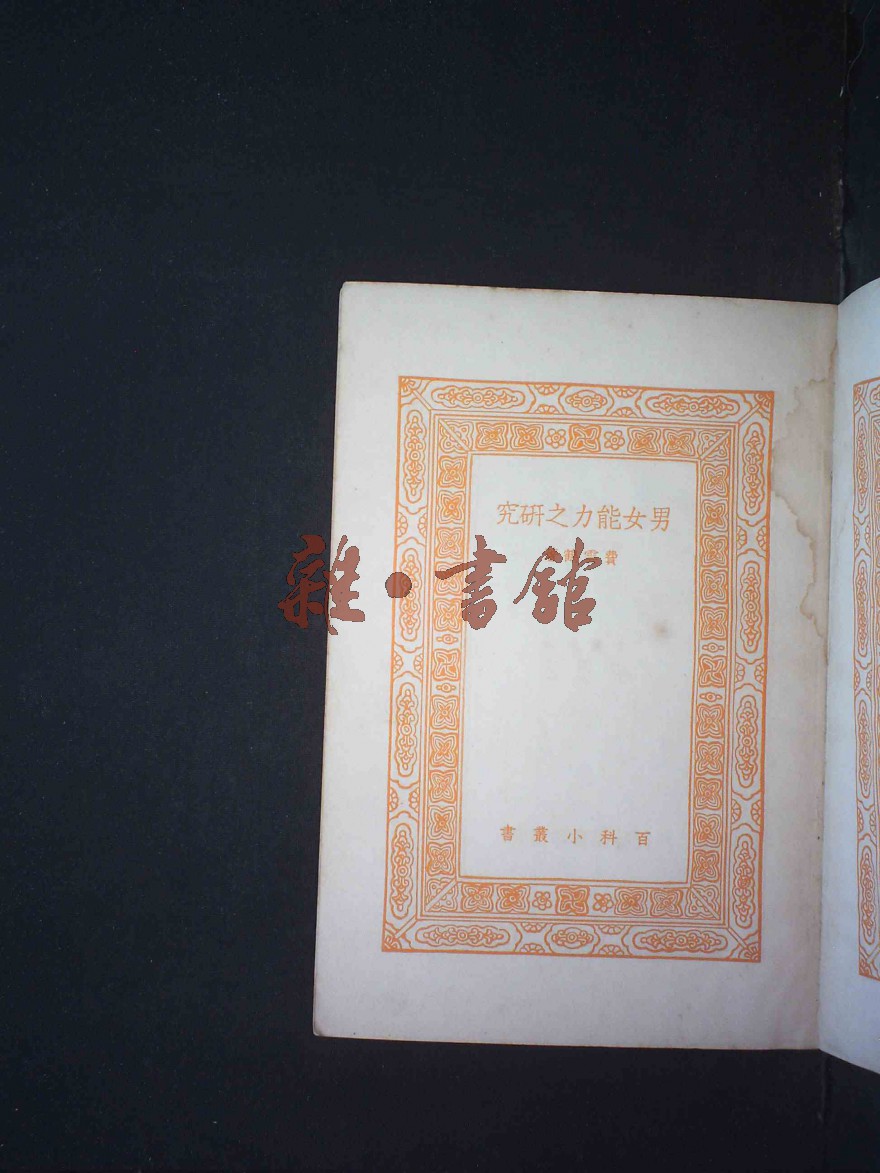 男女能力之研究
費
雜·書館
百科小叢書